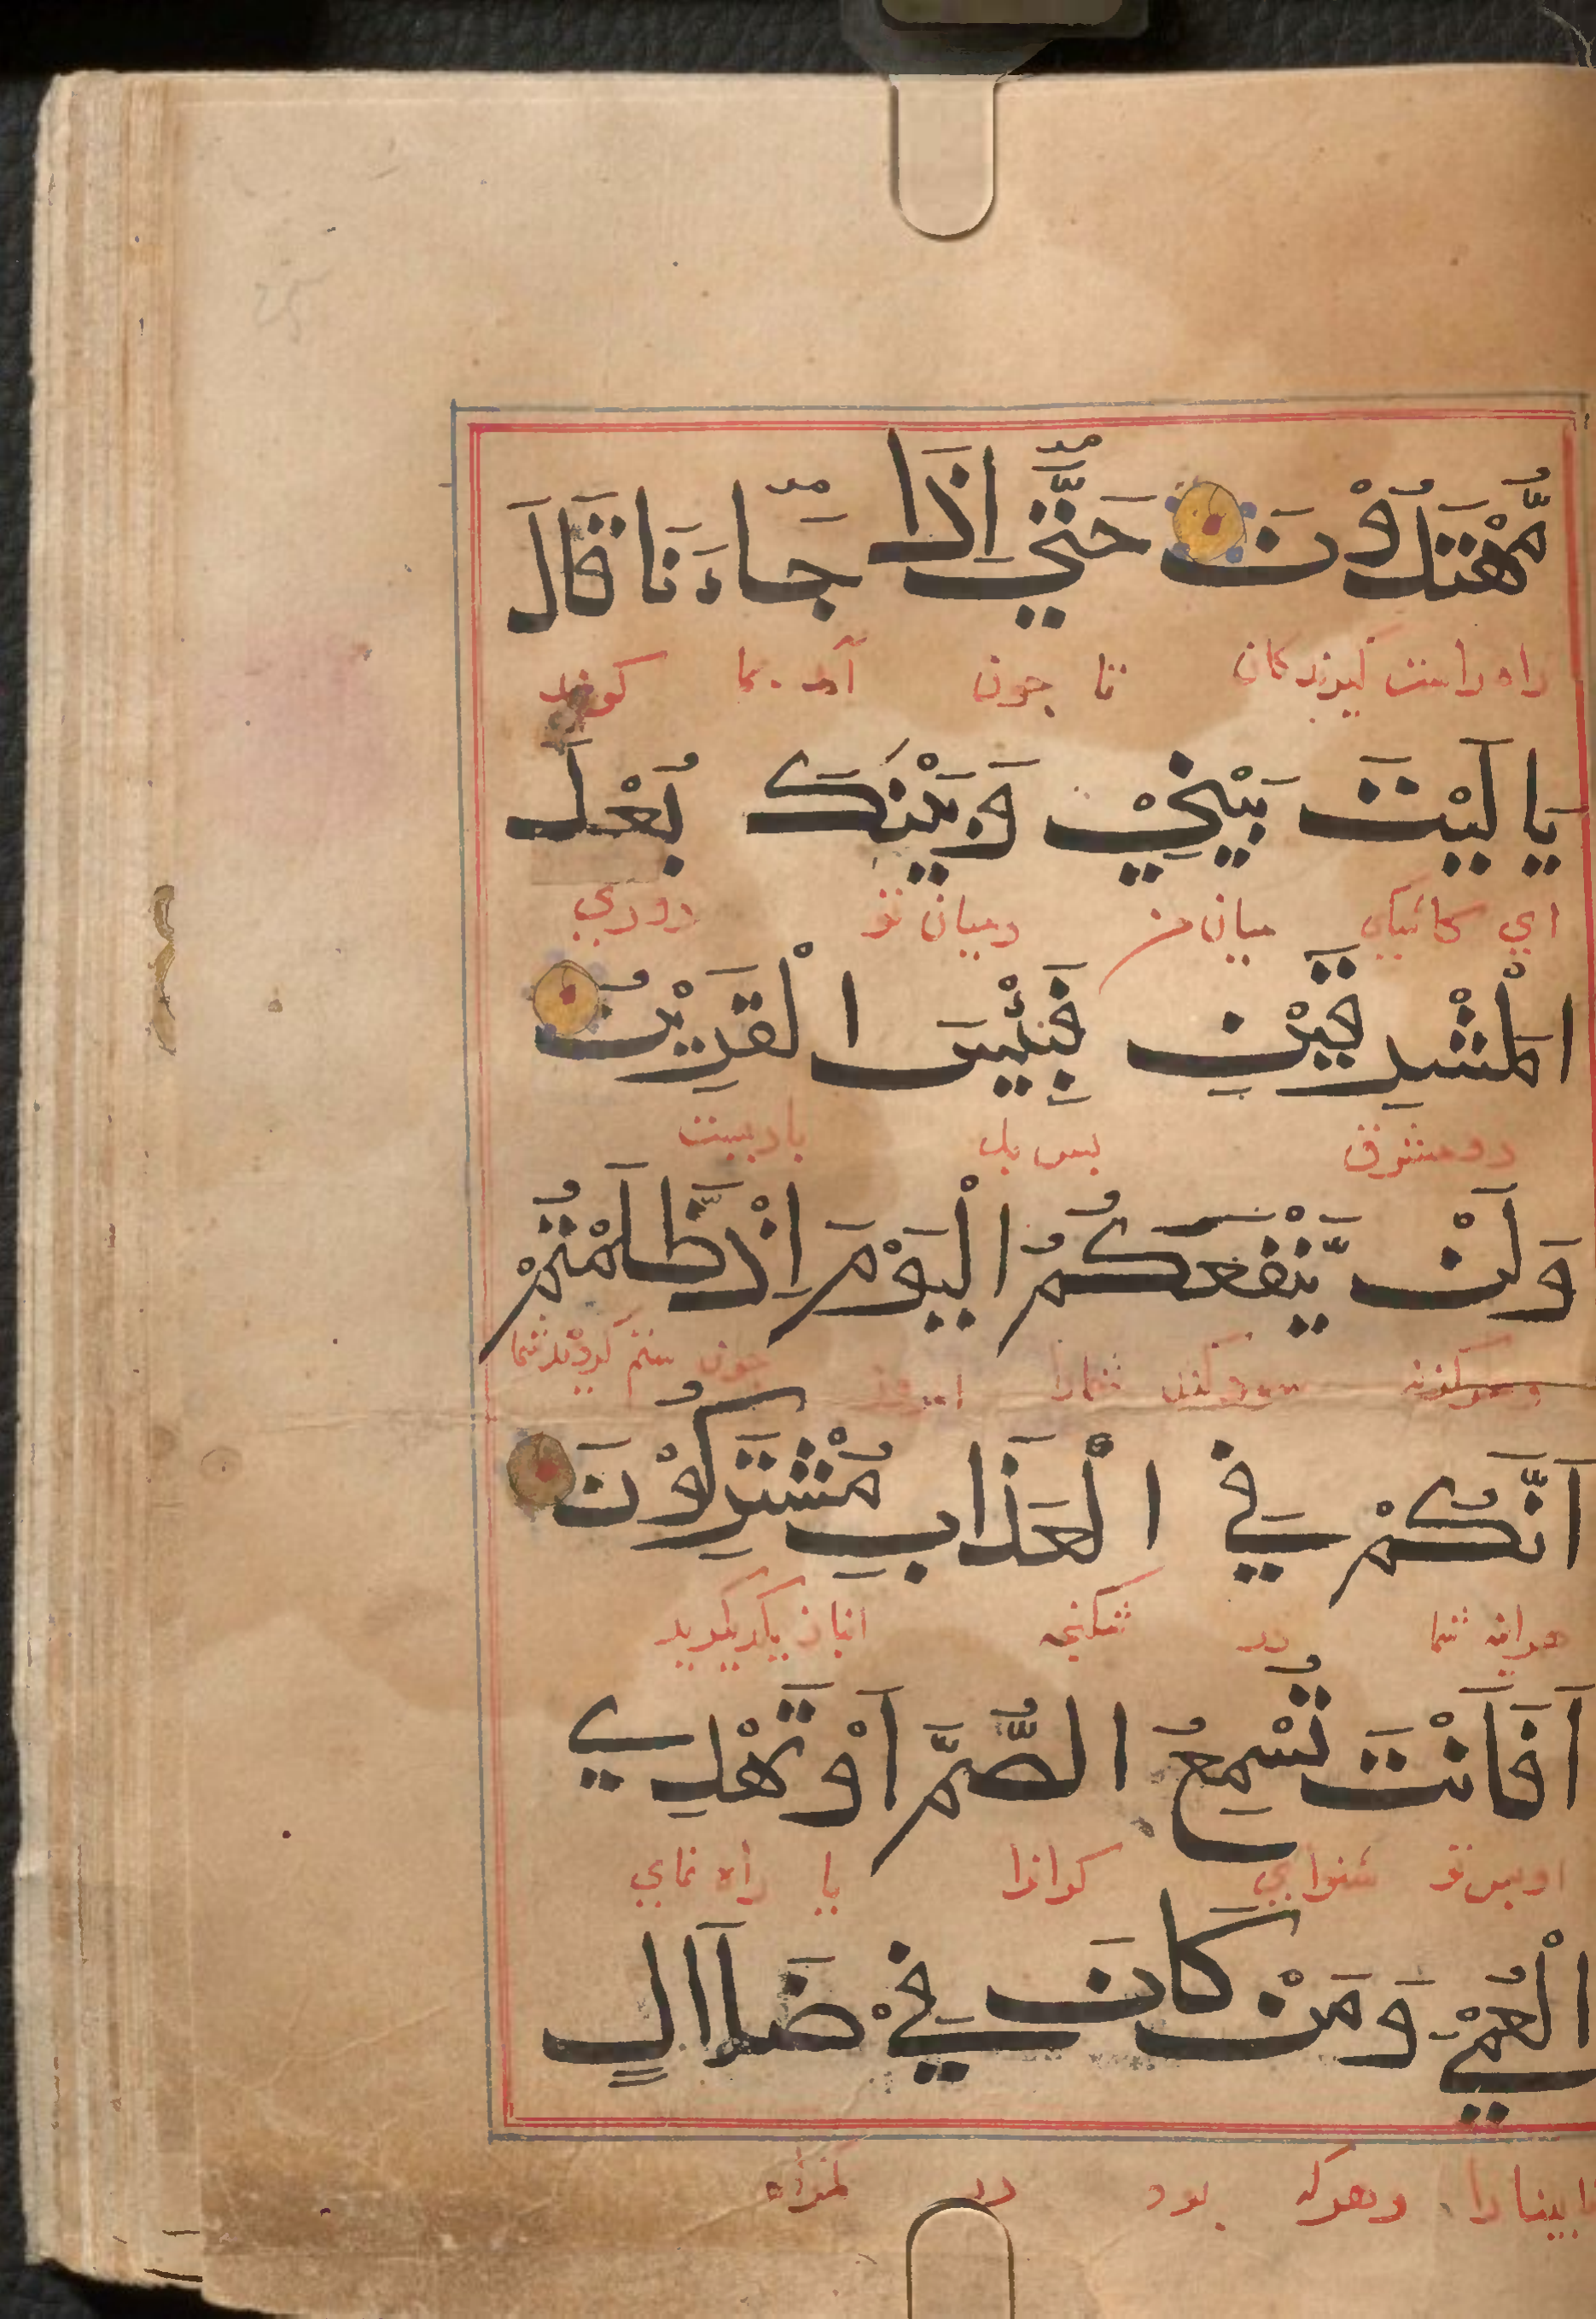 مُّهْتَدُوْنَ حَتَّيٰ اِذَا جَاءَنَا قَالَ
راه راست گیرندگان تا چون آمد بما گویند
يَا لَيْتَ بَيْنِيْ وَبَيْنَكَ بُعْدَ
اي کاشکي میان من ومیان تو دوري
الْمَشْرِقَيْنِ فَبِئْسَ الْقَرِيْنُ
دو مشرق پس بد
وَلَنْ يَّنْفَعَكُمُ الْيَوْمَ اِذْ ظَّلَمْتُمْ
وهرگز نه سود کند شمارا امروز چون ستم کردید شما
اَنَّكُمْ فِي الْعَذَابِ مُشْتَرِكُوْنَ
هراینه شما در شکنجه
اَفَاَنْتَ تُسْمِعُ الصُّمَّ اَوْ تَهْدِي
او پس تو شنوایي کرانرا یا راه نماي
الْعُمْيَ وَمَنْ كَانَ فِيْ ضَلَاالٍ
نابینا را وهرکه بود در گمراه